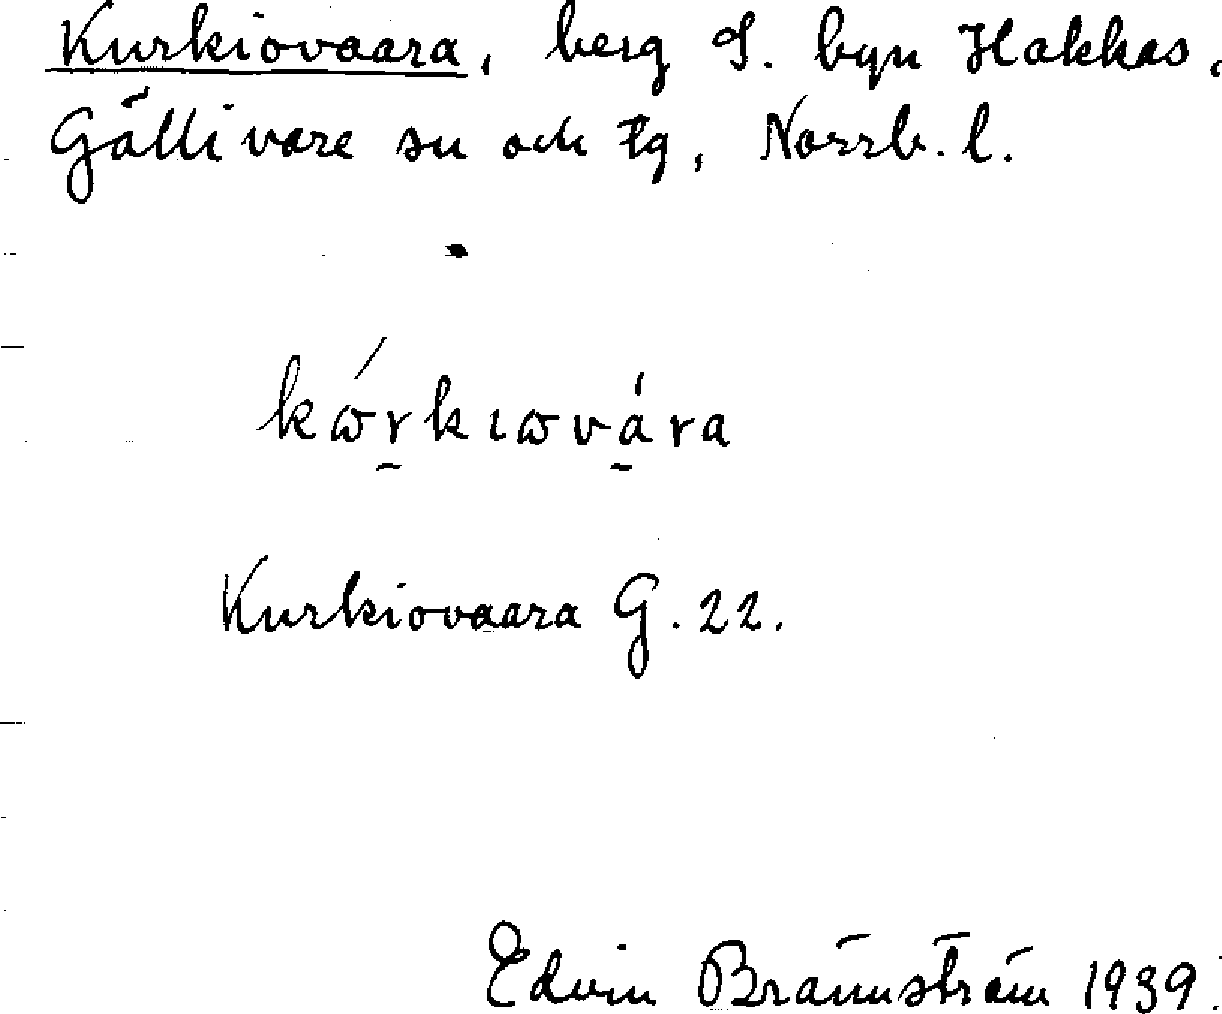 Kurkiovaara, berg S. byn Hakkas,
Gällivare sn och tg, Norrb. l.
kώ̱rkıωvá̱ra
Kurkiovaara G. 22.
Edvin Brännström 1939.